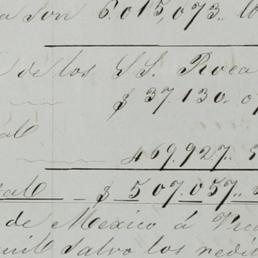 son 6.015,073.. lo
de los SS. Roca
$ 37.130. 0
469.927..
$ 507.057..
de Mexico á
salvo los redi